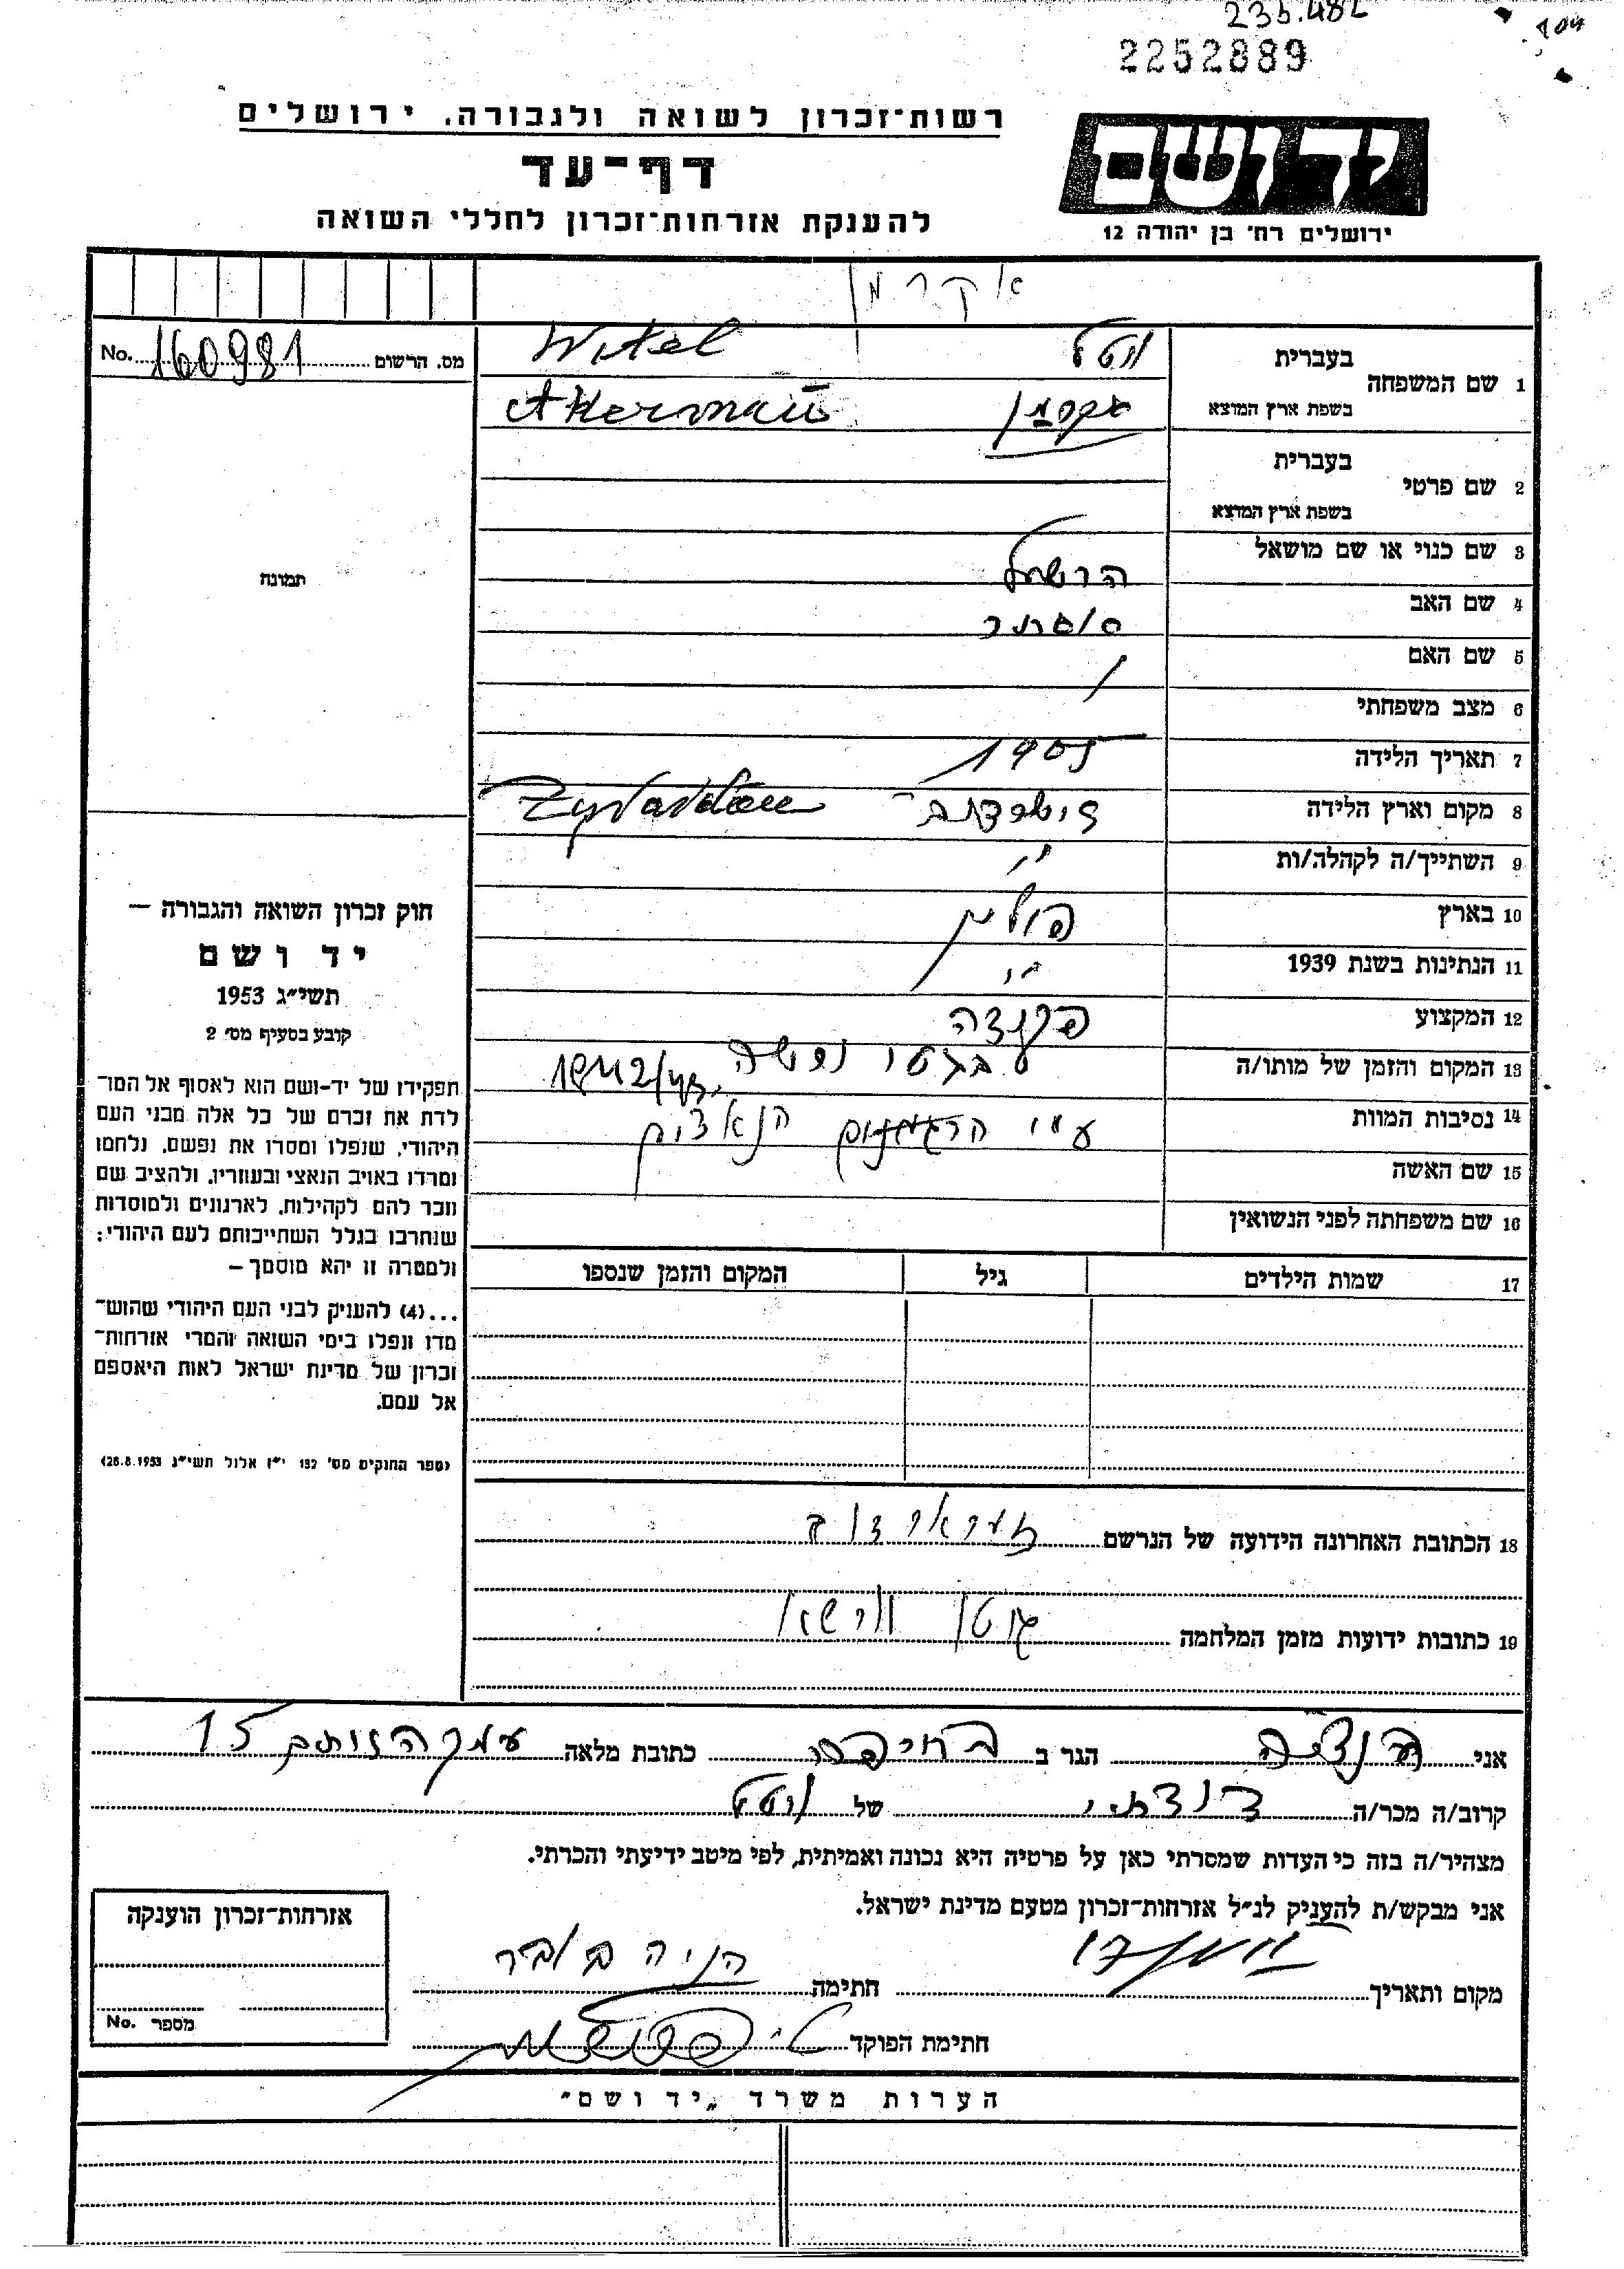 235.482
104
2252889
רשות־זכרון לשואה ולגבורה, ירושלים
דף־עד
להענקת אזרחות־זכרון לחללי השואה
יד ושם
ירושלים רח׳ בן יהודה 12
אקרמן
מס. הרשום 160981 No.
1 שם המשפחה
בעברית
ויטל Witel
בשפת ארץ המוצא
אקרמן Akerman
2 שם פרטי
בעברית
בשפת ארץ המוצא
3 שם כנוי או שם מושאל
הרשל
4 שם האב
5 שם האם
6 מצב משפחתי
7 תאריך הלידה 1905
8 מקום וארץ הלידה
9 השתייך/ה לקהלה/ות
״
10 בארץ פולין
11 הנתינות בשנת 1939 ״
12 המקצוע
13 המקום והזמן של מותו/ה
בגטו ורשה 1942/43
14 נסיבות המוות
ע״י הגרמנים הנאצים
15 שם האשה
16 שם משפחתה לפני הנשואין
17 שמות הילדים גיל המקום והזמן שנספו
תמונה
חוק זכרון השואה והגבורה —
יד ושם
תשי״ג 1953
קובע בסעיף מס׳ 2
תפקידו של יד-ושם הוא לאסוף אל המו־
לדת את זכרם של כל אלה מבני העם
היהודי, שנפלו ומסרו את נפשם, נלחמו
ומרדו באויב הנאצי ובעוזריו, ולהציב שם
וזכר להם לקהילות, לארגונים ולמוסדות
שנחרבו בגלל השתייכותם לעם היהודי;
ולמטרה זו יהא מוסמך —
...(4) להעניק לבני העם היהודי שהוש־
מדו ונפלו בימי השואה והמרי אזרחות־
זכרון של מדינת ישראל לאות היאספם
אל עמם.
(ספר החוקים מס׳ 132 י״ז אלול תשי״ג 28.8.1953)
18 הכתובת האחרונה הידועה של הנרשם
19 כתובות ידועות מזמן המלחמה גטו ורשא
אני הגר ב בחיפה כתובת מלאה עמק הזיתים 15
קרוב/ה מכר/ה של ויטל
מצהיר/ה בזה כי העדות שמסרתי כאן על פרטיה היא נכונה ואמיתית, לפי מיטב ידיעתי והכרתי.
אני מבקש/ת להעניק לנ״ל אזרחות־זכרון מטעם מדינת ישראל.
מקום ותאריך חתימה
חתימת הפוקד
אזרחות־זכרון הוענקה
מספר No.
הערות משרד „יד ושם״